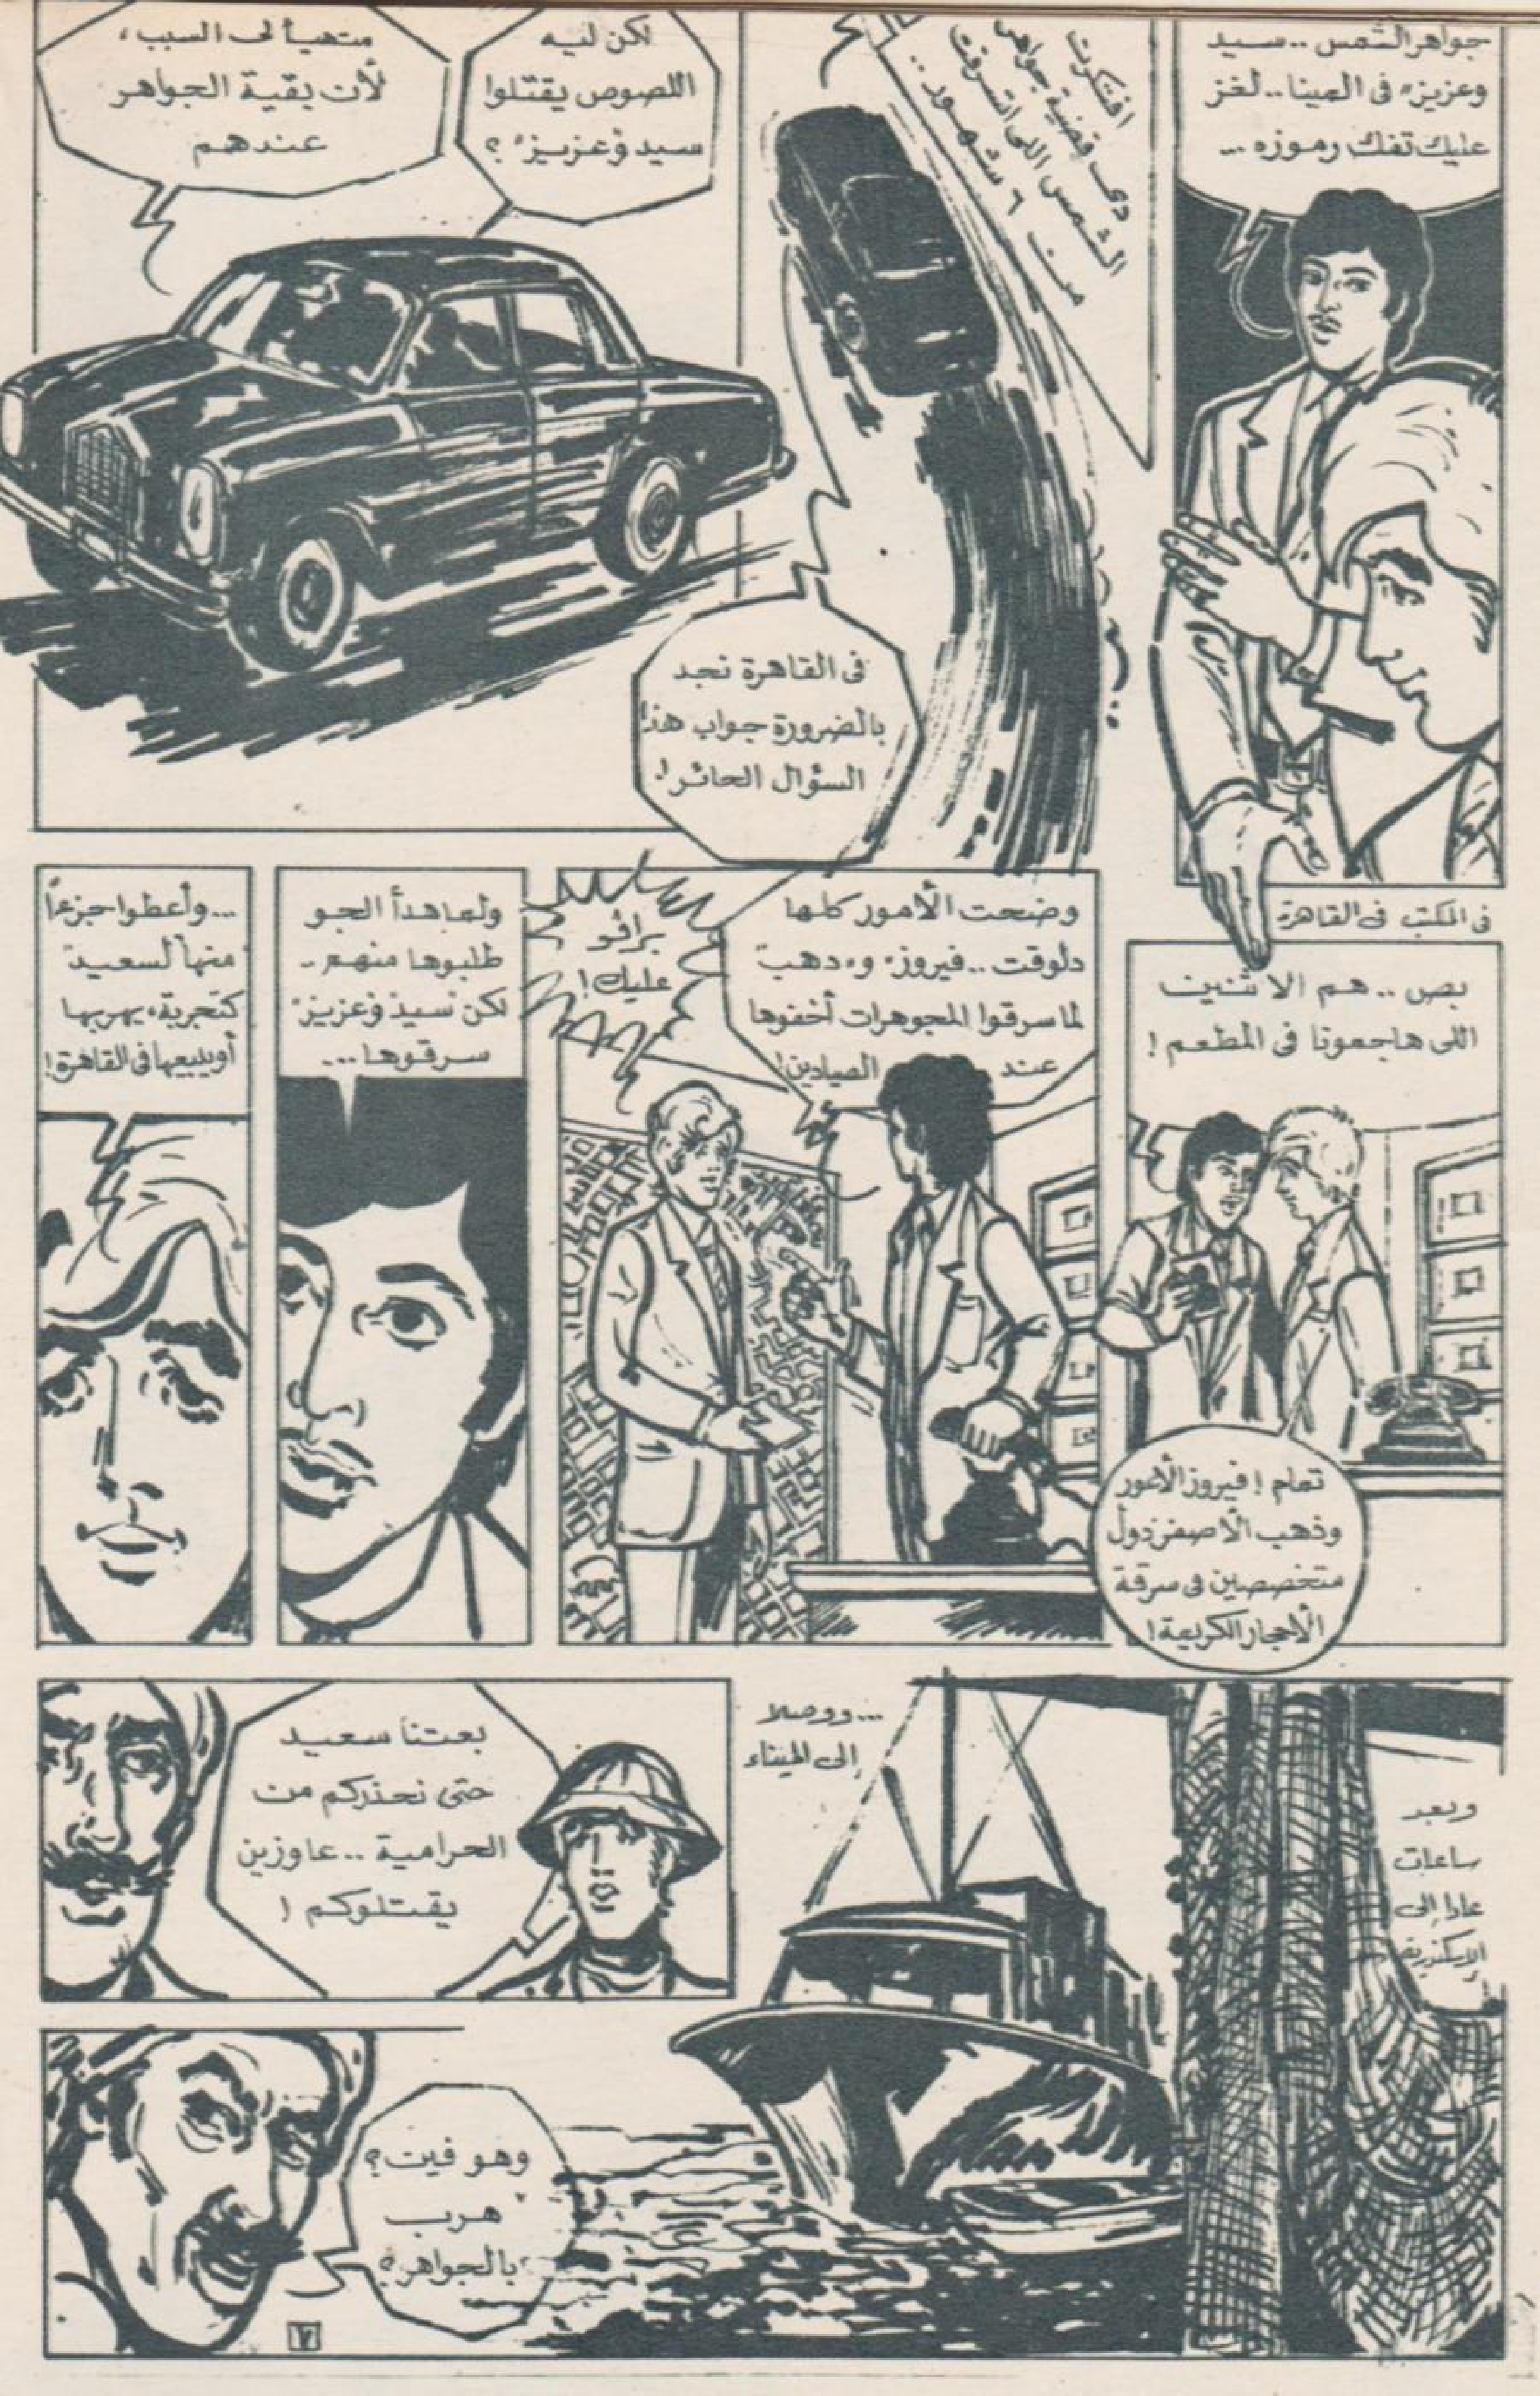 جواهر الشمس .. سيد
وعزيز" فى المينا .. لغز
عليك تفك رموزه ...
افتكرت
دى قضية جواهر
الشمس اللى اتسرقت
من ٦ شهور ..
لكن ليه
اللصوص يقتلوا
سيد وعزيز" ؟
متهيألى السبب ،
لأن بقية الجواهر
عندهم
فى القاهرة نجد
بالضرورة جواب هذا
السؤال الحائر !
فى المكتب فى القاهرة
بص .. هم الاثنين
اللى هاجمونا فى المطعم !
تمام ! فيروز الأعور
وذهب الأصفر دول
متخصصين فى سرقة
الأحجار الكريمة !
وضحت الأمور كلها
دلوقت .. فيروز" و"دهب"
لما سرقوا المجوهرات أخفوها
عند الصيادين !
برافو
عليك !
ولما هدأ الجو
طلبوها منهم ..
لكن سيد وعزيز"
سرقوها ...
... وأعطوا جزءاً
منها لسعيد"
كتجربة، يهربها
أو يبيعها فى القاهرة !
وبعد
ساعات
عادا إلى
الإسكندرية
... ووصلا
إلى الميناء
بعتنا سعيد
حتى نحذركم من
الحرامية .. عاوزين
يقتلوكم !
وهو فين ؟
هرب
بالجواهر ؟